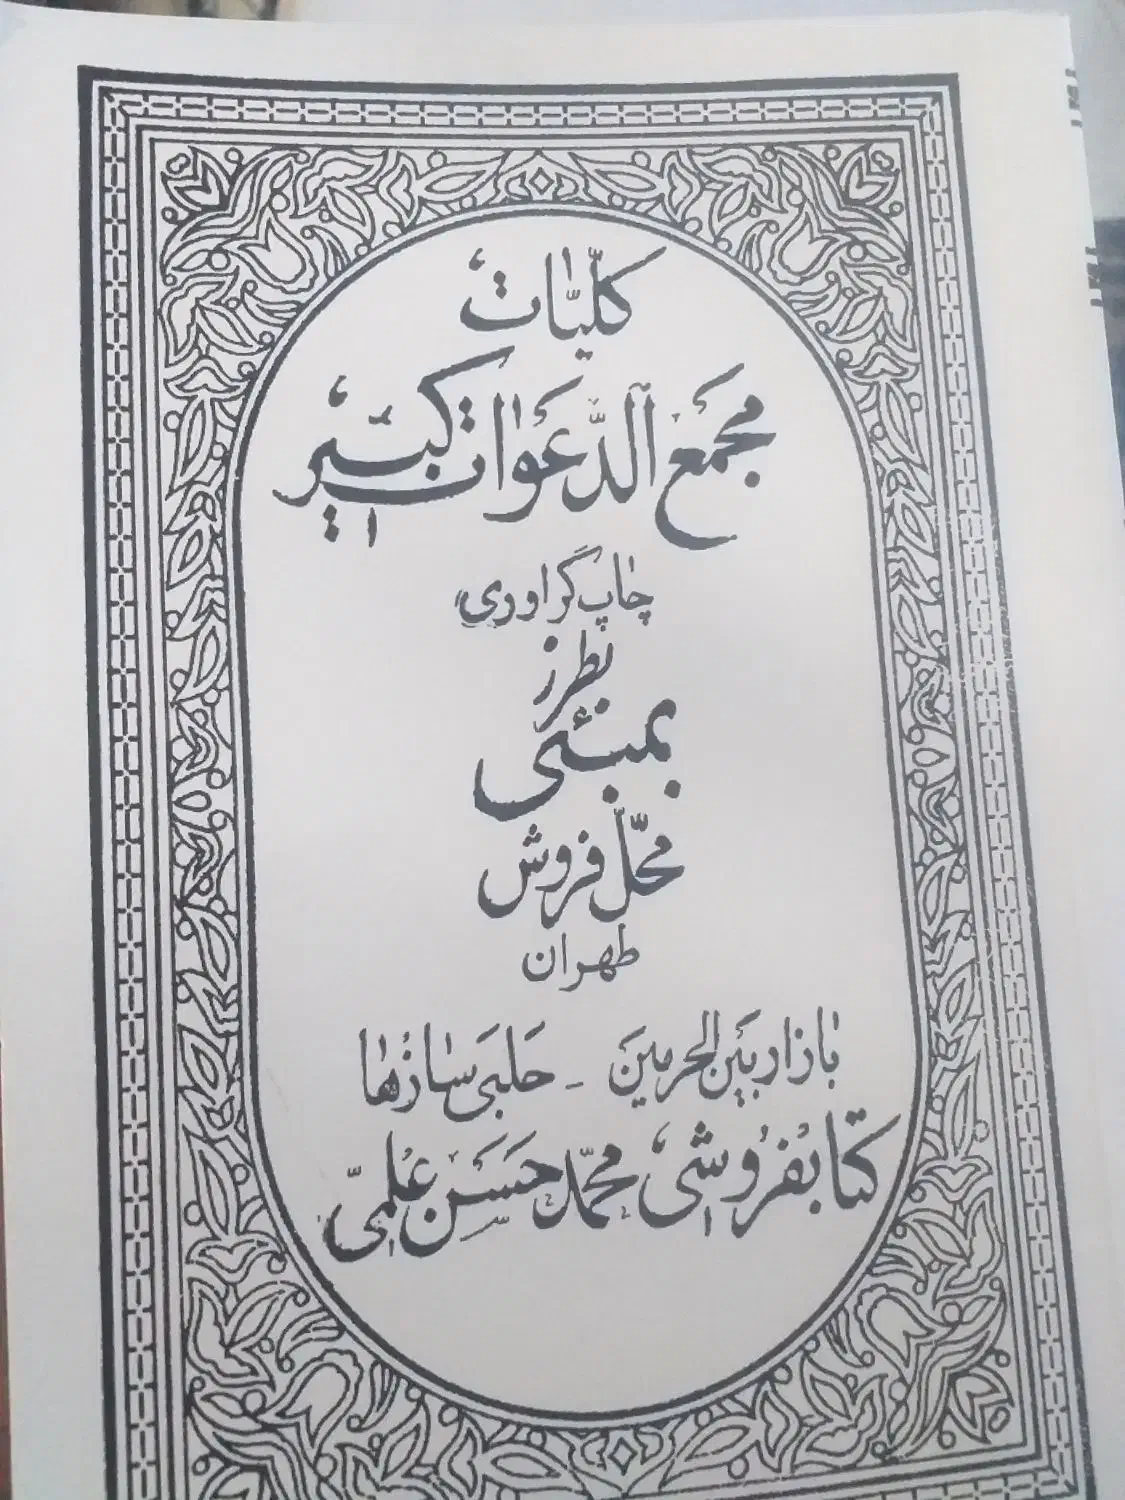 كلّيّات
مجمع الدّعوات كبير
چاپ گراوری
بطرز
بمبئی
محلّ فروش
طهران
بازار بین الحرمین - حلبی سازها
کتابفروشی محمّد حسن علمی